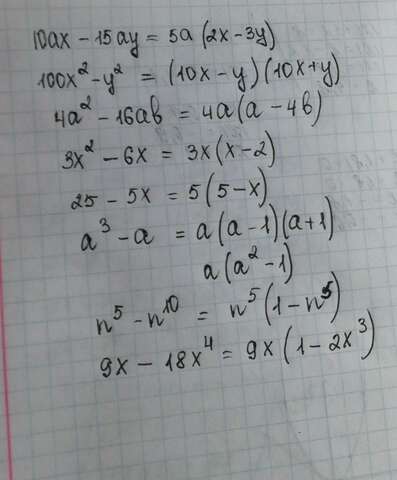 10ax - 15ay = 5a(2x - 3y)
100x² - y² = (10x - y)(10x + y)
4a² - 16ab = 4a(a - 4b)
3x² - 6x = 3x(x - 2)
25 - 5x = 5(5 - x)
a³ - a = a(a - 1)(a + 1)
a(a² - 1)
n⁵ - n¹⁰ = n⁵(1 - n⁵)
9x - 18x⁴ = 9x(1 - 2x³)